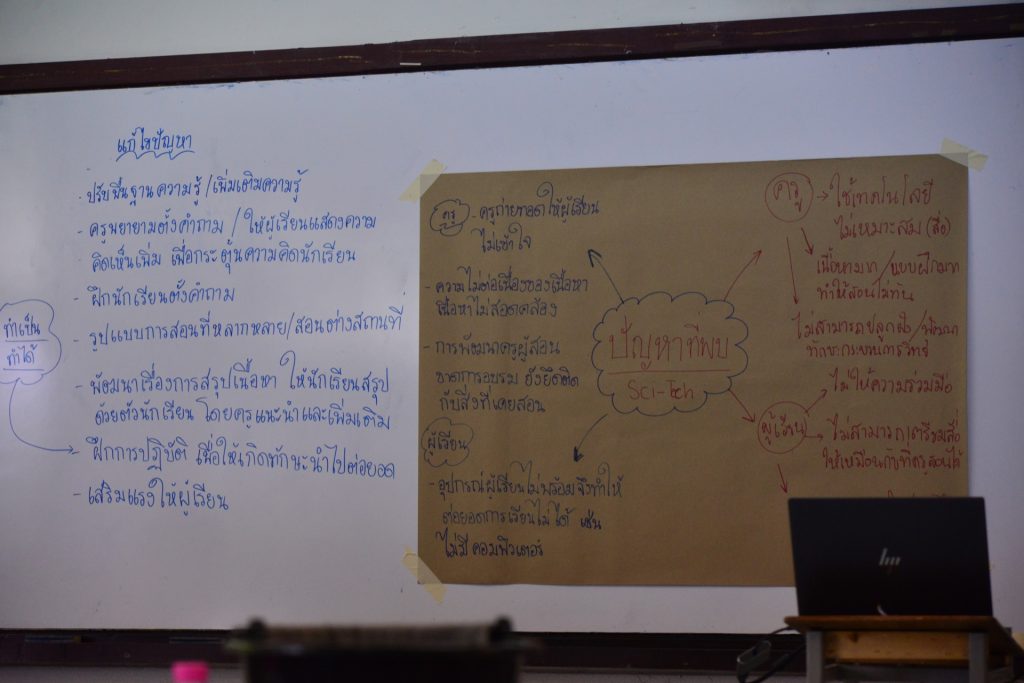 แก้ไขปัญหา
- ปรับพื้นฐานความรู้ / เพิ่มเติมความรู้
- ครูพยายามตั้งคำถาม / ให้ผู้เรียนแสดงความ
คิดเห็นเพิ่ม เพื่อกระตุ้นความคิดนักเรียน
- ฝึกนักเรียนตั้งคำถาม
- รูปแบบการสอนที่หลากหลาย/สอนต่างสถานที่
- พัฒนาเรื่องการสรุปเนื้อหา ให้นักเรียนสรุป
ด้วยตัวนักเรียน โดยครูแนะนำและเพิ่มเติม
- ฝึกการปฏิบัติ เพื่อให้เกิดทักษะนำไปต่อยอด
- เสริมแรงให้ผู้เรียน
ทำเป็น
ทำได้
ครู - ครูถ่ายทอดให้ผู้เรียน
ไม่เข้าใจ
- ความไม่ต่อเนื่องของเนื้อหา
เนื้อหาไม่สอดคล้อง
- การพัฒนาครูผู้สอน
ขาดการอบรม ยังยึดติด
กับสิ่งที่เคยสอน
ผู้เรียน
- อุปกรณ์ผู้เรียนไม่พร้อมจึงทำให้
ต่อยอดการเรียนไม่ได้ เช่น
ไม่มีคอมพิวเตอร์
ปัญหาที่พบ
Sci-Tech
ครู → ใช้เทคโนโลยี
ไม่เหมาะสม (สื่อ)
เนื้อหามาก / แบบฝึกมาก
ทำให้สอนไม่ทัน
ไม่สามารถปลูกฝัง / พัฒนา
ทักษะกระบวนการวิทย์
ผู้เรียน
ไม่ให้ความร่วมมือ
ไม่สามารถเตรียมสื่อ
ให้เหมือนกับที่ครูสอนได้
hp